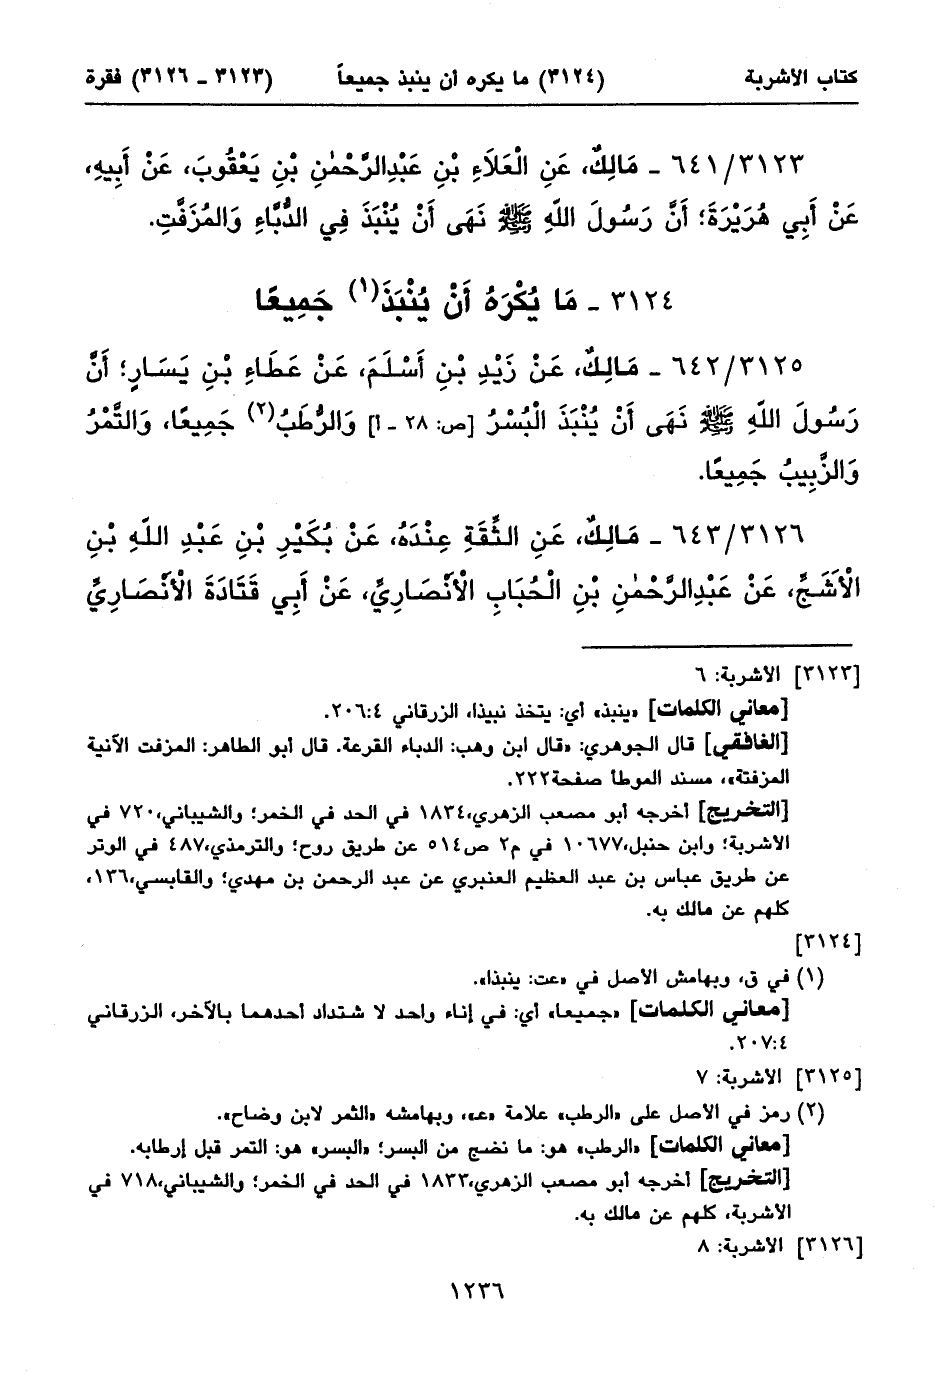 كتاب الأشربة (٣١٢٤) ما يكره أن ينبذ جميعاً (٣١٢٣ ـ ٣١٢٦) فقرة
٦٤١/٣١٢٣ ـ مَالِكٌ، عَنِ الْعَلَاءِ بْنِ عَبْدِالرَّحْمٰنِ بْنِ يَعْقُوبَ، عَنْ أَبِيهِ،
عَنْ أَبِي هُرَيْرَةَ؛ أَنَّ رَسُولَ اللهِ ﷺ نَهَى أَنْ يُنْبَذَ فِي الدُّبَّاءِ وَالمُزَفَّتِ.
٣١٢٤ ـ مَا يُكْرَهُ أَنْ يُنْبَذَ(١) جَمِيعًا
٦٤٢/٣١٢٥ ـ مَالِكٌ، عَنْ زَيْدِ بْنِ أَسْلَمَ، عَنْ عَطَاءِ بْنِ يَسَارٍ؛ أَنَّ
رَسُولَ اللهِ ﷺ نَهَى أَنْ يُنْبَذَ الْبُسْرُ [ص: ٢٨ ـ أ] وَالرُّطَبُ(٢) جَمِيعًا، وَالتَّمْرُ
وَالزَّبِيبُ جَمِيعًا.
٦٤٣/٣١٢٦ ـ مَالِكٌ، عَنِ الثِّقَةِ عِنْدَهُ، عَنْ بُكَيْرِ بْنِ عَبْدِ اللهِ بْنِ
الْأَشَجِّ، عَنْ عَبْدِالرَّحْمٰنِ بْنِ الْحُبَابِ الْأَنْصَارِيِّ، عَنْ أَبِي قَتَادَةَ الْأَنْصَارِيِّ
[٣١٢٣] الأشربة: ٦
[معاني الكلمات] «ينبذ» أي: يتخذ نبيذا، الزرقاني ٢٠٦:٤.
[الغافقي] قال الجوهري: «قال ابن وهب: الدباء القرعة. قال أبو الطاهر: المزفت الآنية
المزفتة»، مسند الموطأ صفحة٢٢٢.
[التخريج] أخرجه أبو مصعب الزهري،١٨٣٤ في الحد في الخمر؛ والشيباني،٧٢٠ في
الأشربة؛ وابن حنبل،١٠٦٧٧ في م٢ ص٥١٤ عن طريق روح؛ والترمذي،٤٨٧ في الوتر
عن طريق عباس بن عبد العظيم العنبري عن عبد الرحمن بن مهدي؛ والقابسي،١٣٦،
كلهم عن مالك به.
[٣١٢٤]
(١) في ق، وبهامش الأصل في «عت: ينبذا».
[معاني الكلمات] «جميعا» أي: في إناء واحد لا شتداد أحدهما بالآخر، الزرقاني
٢٠٧:٤.
[٣١٢٥] الأشربة: ٧
(٢) رمز في الأصل على «الرطب» علامة «عـ»، وبهامشه «الثمر لابن وضاح».
[معاني الكلمات] «الرطب» هو: ما نضج من البسر؛ «البسر» هو: التمر قبل إرطابه.
[التخريج] أخرجه أبو مصعب الزهري،١٨٣٣ في الحد في الخمر؛ والشيباني،٧١٨ في
الأشربة، كلهم عن مالك به.
[٣١٢٦] الأشربة: ٨
١٢٣٦